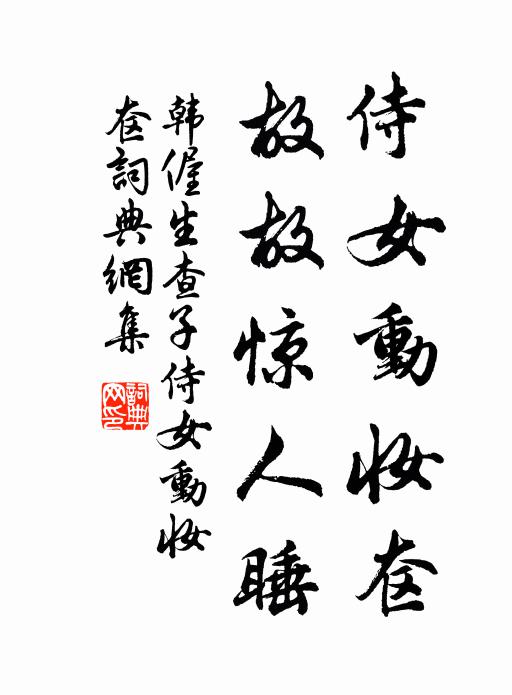 侍女動妝奁
故故惊人睡
韩偓生查子侍女動妝
奁詞典網集
詞典網印